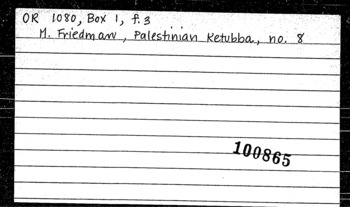 OR 1080, Box 1, f.3
M. Friedman, Palestinian Ketubba, no. 8
100865